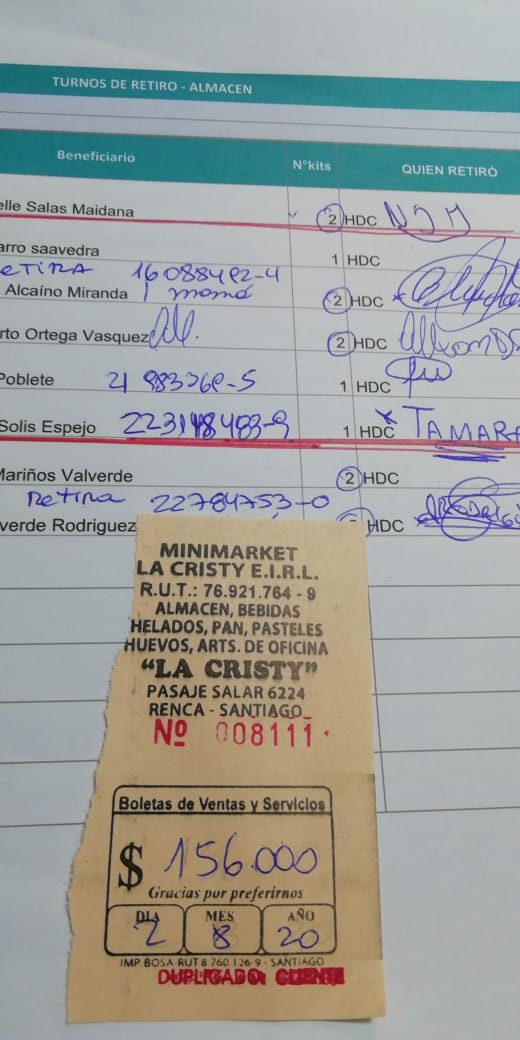 TURNOS DE RETIRO - ALMACEN
Beneficiario N°kits QUIEN RETIRÓ
elle Salas Maidana 2 HDC NJM
arro saavedra 1 HDC
eTiRA 16088492-4
Alcaíno Miranda 1 mamá 2 HDC
rto Ortega Vasquez 2 HDC
Poblete 1 HDC
Solis Espejo 1 HDC TAMARA
Mariños Valverde 2 HDC
Retira 22784753-0
verde Rodriguez HDC
MINIMARKET
LA CRISTY E.I.R.L.
R.U.T.: 76.921.764 - 9
ALMACEN, BEBIDAS
HELADOS, PAN, PASTELES
HUEVOS, ARTS. DE OFICINA
“LA CRISTY”
PASAJE SALAR 6224
RENCA - SANTIAGO
Nº 008111
Boletas de Ventas y Servicios
$ 156.000
Gracias por preferirnos
DIA MES AÑO
2 8 20
IMP BOSA RUT 8 760 126-9 - SANTIAGO
DUPLICADO: CLIENTE